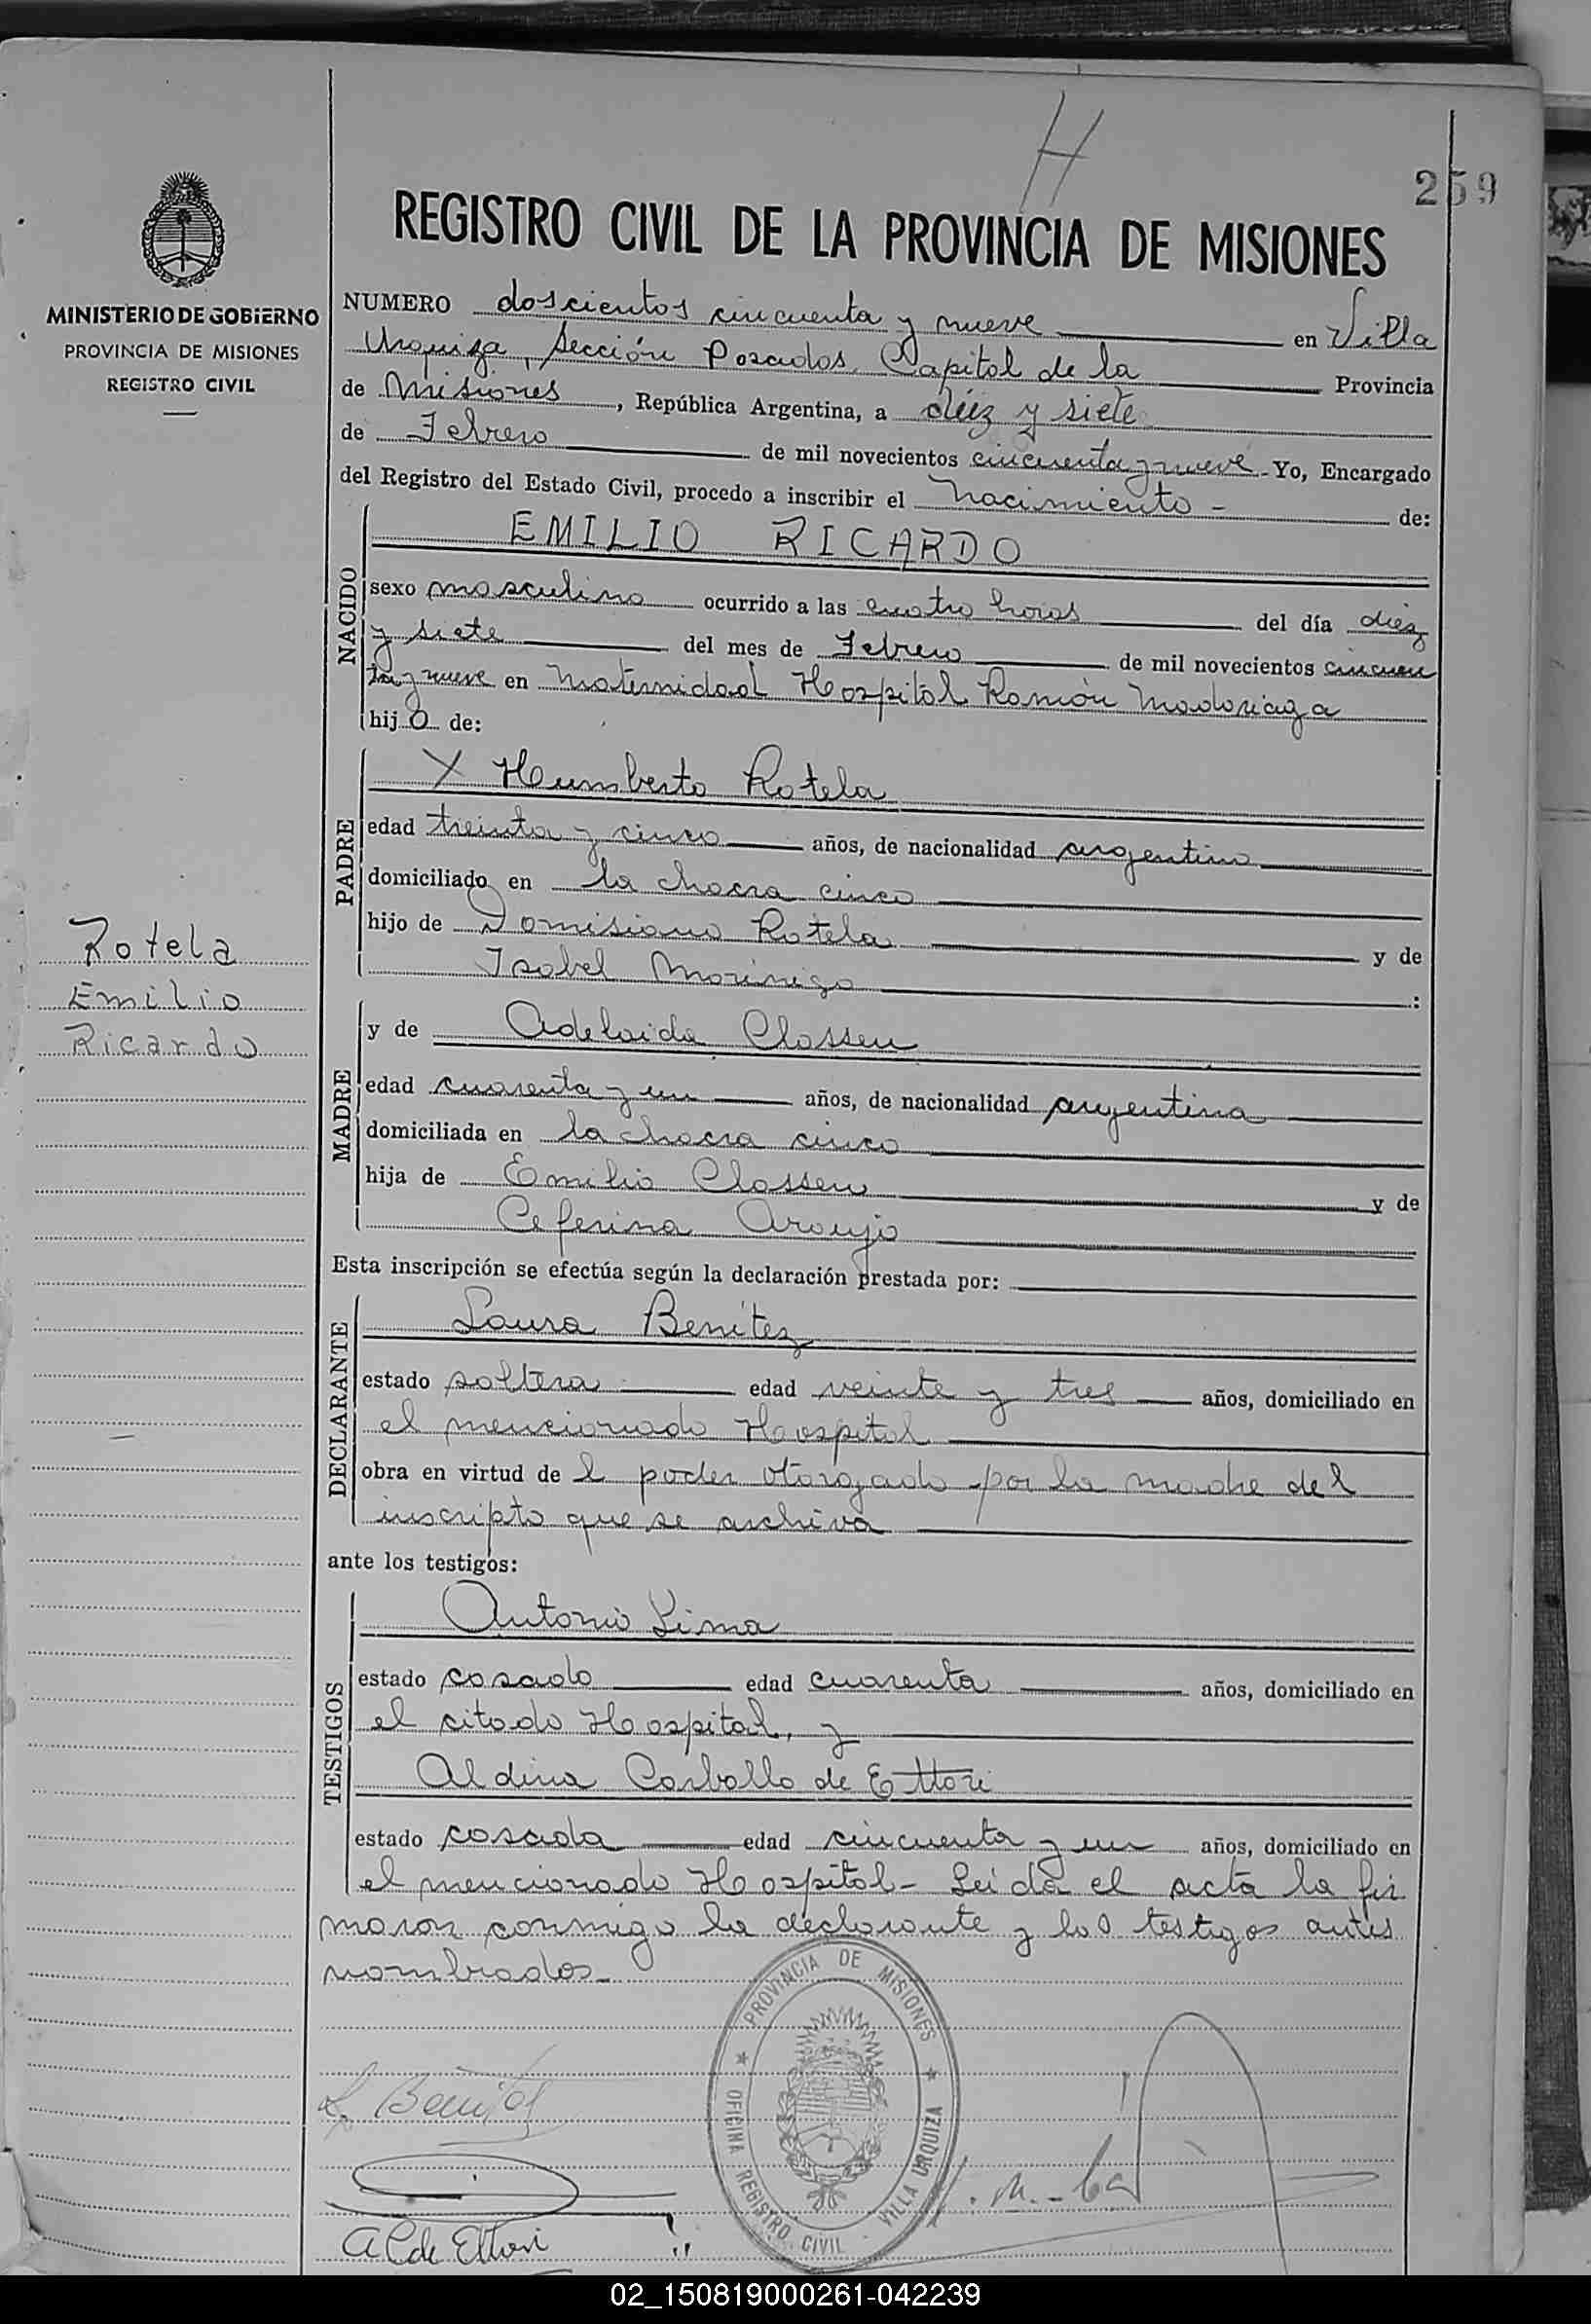 H
259
MINISTERIO DE GOBIERNO
PROVINCIA DE MISIONES
REGISTRO CIVIL
REGISTRO CIVIL DE LA PROVINCIA DE MISIONES
NUMERO doscientos cincuenta y nueve en Villa
Urquiza, Sección Posadas, Capital de la Provincia
de Misiones, República Argentina, a diez y siete
de Febrero de mil novecientos cincuenta y nueve. Yo, Encargado
del Registro del Estado Civil, procedo a inscribir el nacimiento - de:
NACIDO
EMILIO RICARDO
sexo masculino ocurrido a las cuatro horas del día diez
y siete del mes de Febrero de mil novecientos cincuen
ta y nueve en Maternidad Hospital Ramón Madariaga
hijo de:
PADRE
X Humberto Rotela
edad treinta y cinco años, de nacionalidad argentino
domiciliado en la chacra cinco
hijo de Domisiano Rotela y de
Isabel Morinigo :
Rotela
Emilio
Ricardo
MADRE
y de Adelaida Classen
edad cuarenta y un años, de nacionalidad argentina
domiciliada en la chacra cinco
hija de Emilio Classen y de
Ceferina Araujo
Esta inscripción se efectúa según la declaración prestada por:
DECLARANTE
Laura Benitez
estado soltera edad veinte y tres años, domiciliado en
el mencionado Hospital
obra en virtud de l poder otorgado por la madre del
inscripto que se archiva
ante los testigos:
TESTIGOS
Antonio Lima
estado casado edad cuarenta años, domiciliado en
el citado Hospital, y
Aldina Carballo de Ettori
estado casada edad cincuenta y un años, domiciliado en
el mencionado Hospital - Leida el acta la fir
maron conmigo la declarante y los testigos antes
nombrados.
PROVINCIA DE MISIONES
OFICINA REGISTRO CIVIL - VILLA URQUIZA
L. Benitez
A C de Ettori
02_150819000261-042239